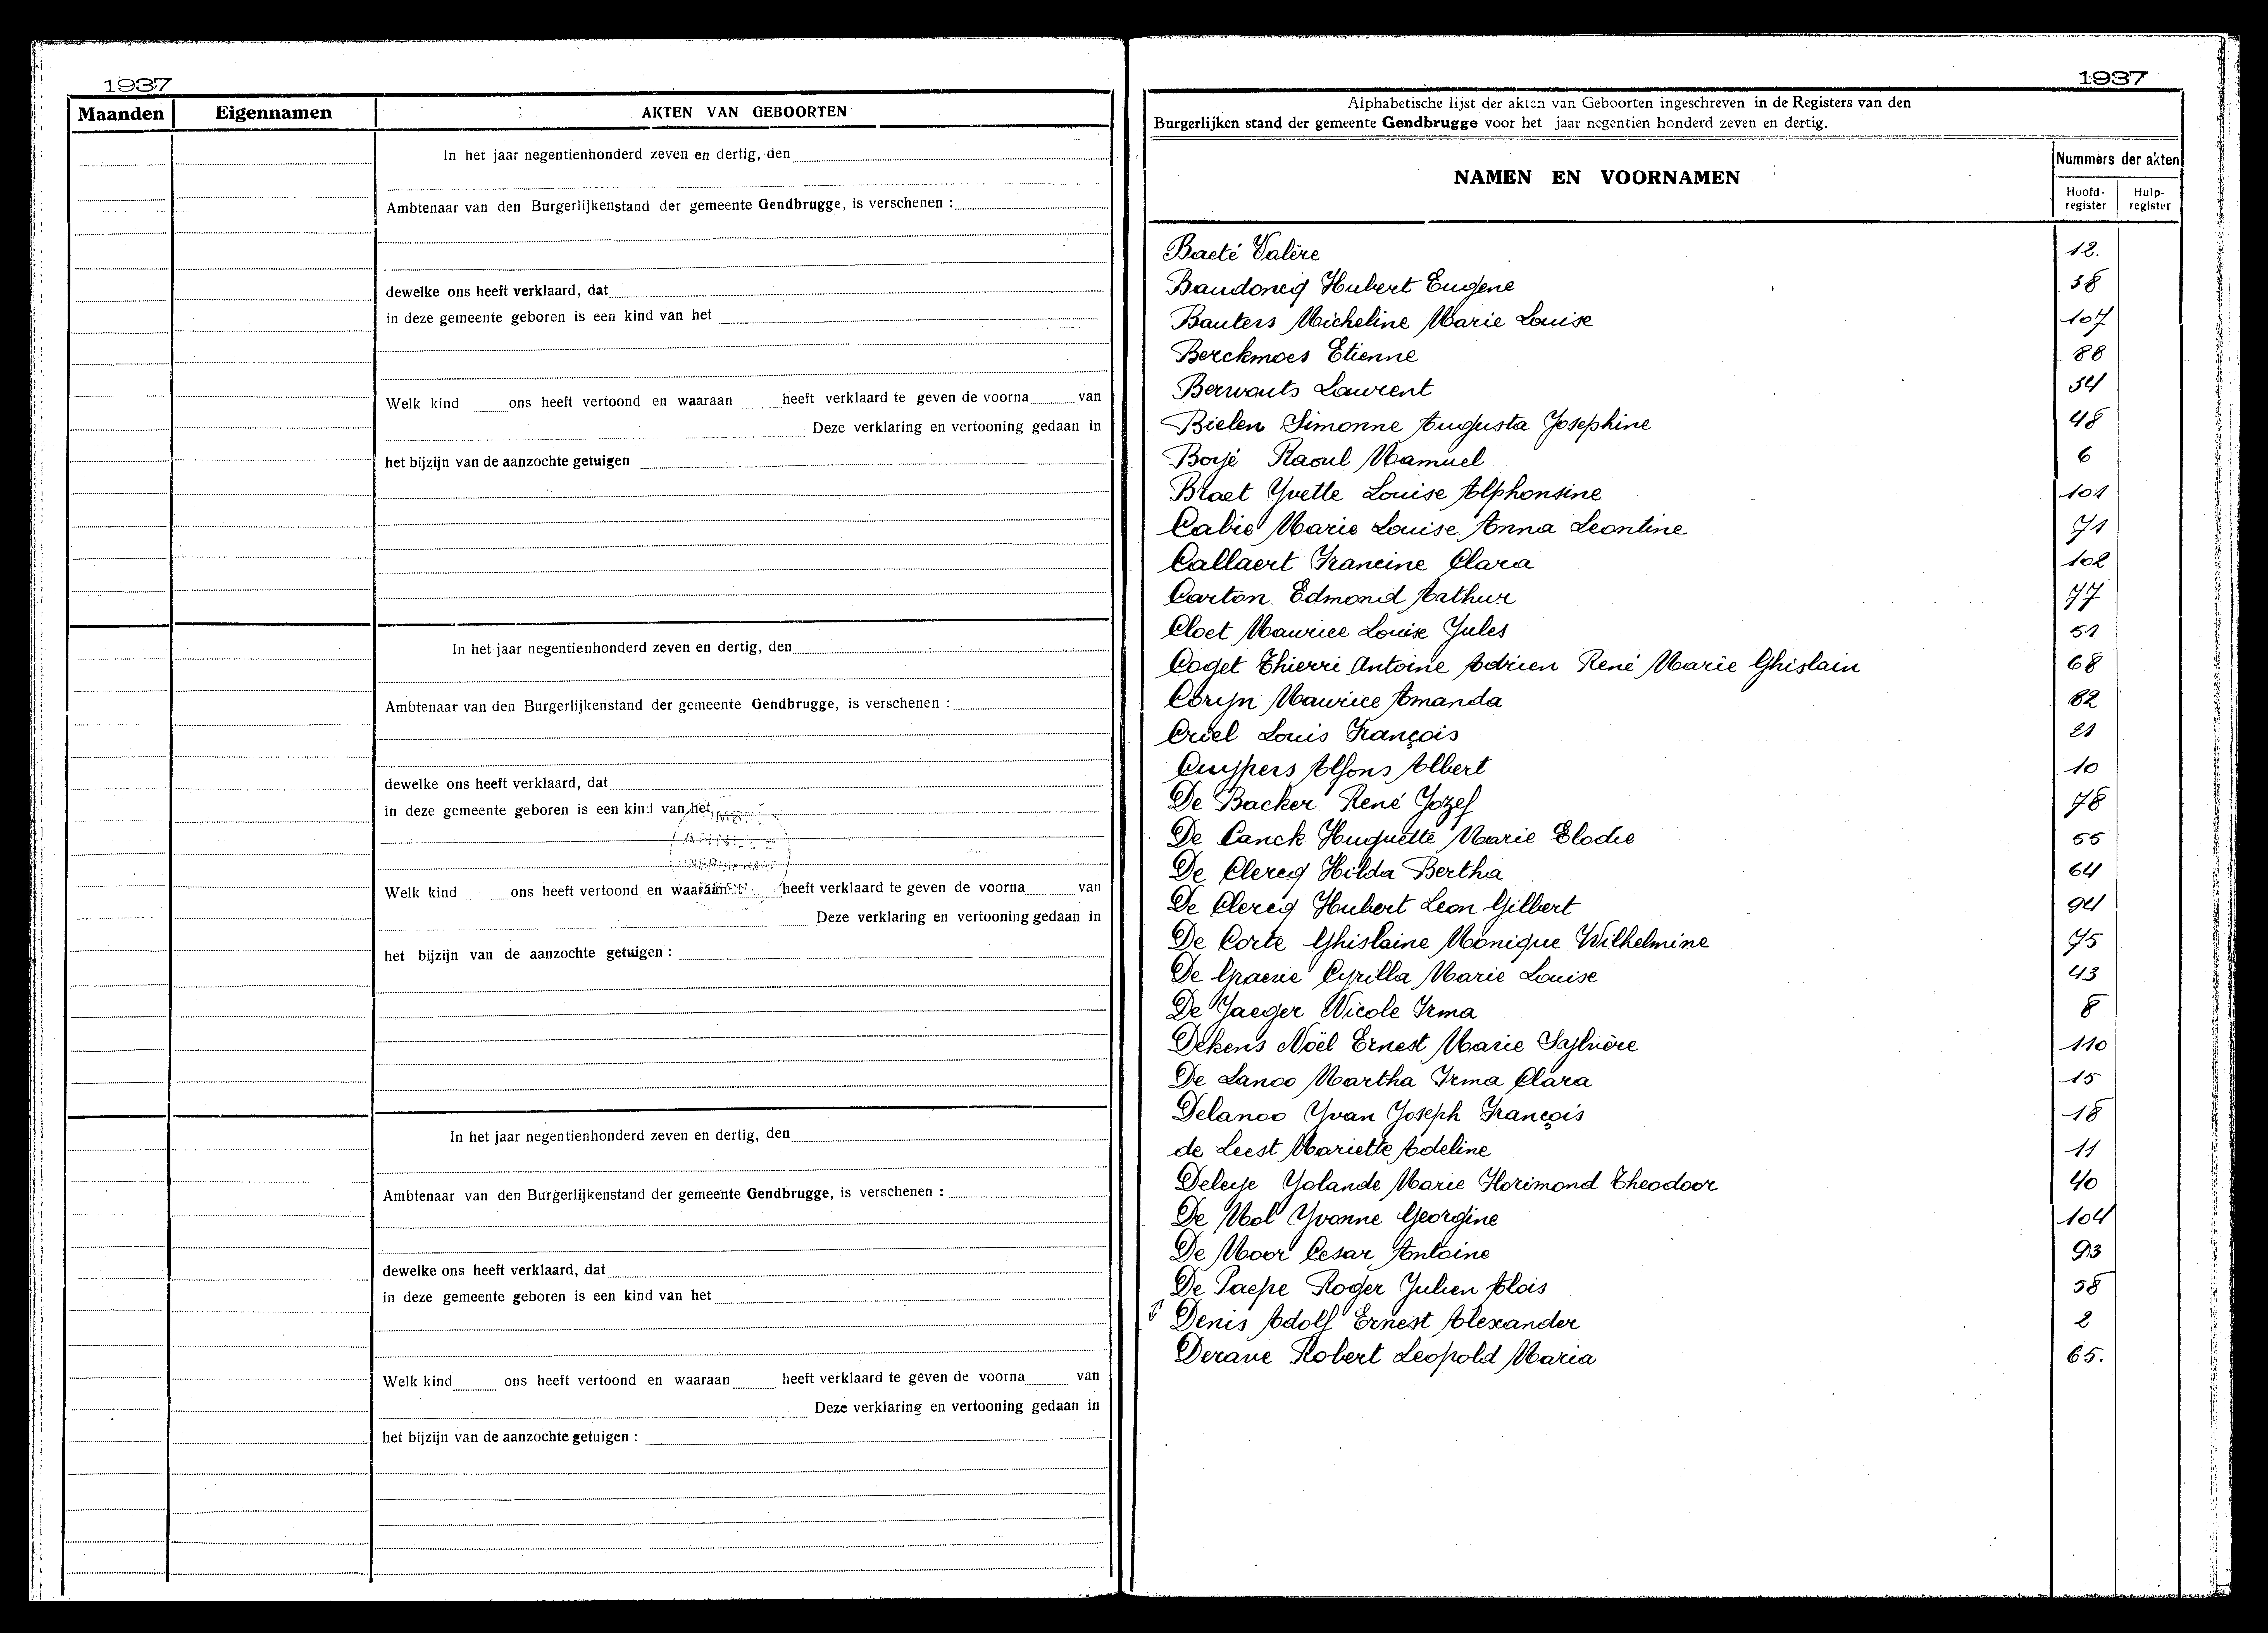 1937
Maanden Eigennamen AKTEN VAN GEBOORTEN
In het jaar negentienhonderd zeven en dertig, den
Ambtenaar van den Burgerlijkenstand der gemeente Gendbrugge, is verschenen :
dewelke ons heeft verklaard, dat
in deze gemeente geboren is een kind van het
Welk kind ons heeft vertoond en waaraan heeft verklaard te geven de voorna van
Deze verklaring en vertooning gedaan in
het bijzijn van de aanzochte getuigen
In het jaar negentienhonderd zeven en dertig, den
Ambtenaar van den Burgerlijkenstand der gemeente Gendbrugge, is verschenen :
dewelke ons heeft verklaard, dat
in deze gemeente geboren is een kind van het
Welk kind ons heeft vertoond en waaraan heeft verklaard te geven de voorna van
Deze verklaring en vertooning gedaan in
het bijzijn van de aanzochte getuigen :
In het jaar negentienhonderd zeven en dertig, den
Ambtenaar van den Burgerlijkenstand der gemeente Gendbrugge, is verschenen :
dewelke ons heeft verklaard, dat
in deze gemeente geboren is een kind van het
Welk kind ons heeft vertoond en waaraan heeft verklaard te geven de voorna van
Deze verklaring en vertooning gedaan in
het bijzijn van de aanzochte getuigen :
1937
Alphabetische lijst der akten van Geboorten ingeschreven in de Registers van den
Burgerlijken stand der gemeente Gendbrugge voor het jaar negentien honderd zeven en dertig.
NAMEN EN VOORNAMEN Nummers der akten
Hoofd-register Hulp-register
Baeté Valère 12.
Baudoncq Hubert Eugene 38
Bauters Micheline Marie Louise 107
Berckmoes Etienne 88
Berwouts Laurent 54
Bielen Simonne Augusta Josephine 48
Boyé Raoul Mamuel 6
Braet Yvette Louise Alphonsine 101
Cabie Marie Louise Anna Leontine 71
Callaert Francine Clara 102
Carton Edmond Arthur 77
Cloet Maurice Louise Jules 51
Coget Thierri Antoine Adrien René Marie Ghislain 68
Coryn Maurice Amanda 82
Criel Louis François 21
Cuypers Alfons Albert 10
De Backer René Jozef 78
De Canck Huguette Marie Elodie 55
De Clercq Hilda Bertha 64
De Clercq Hubert Leon Gilbert 94
De Corte Ghislaine Monique Wilhelmine 75
De Graeve Cyrilla Marie Louise 43
De Jaeger Nicole Irma 8
Dekens Noël Ernest Marie Sylvère 110
De Lanoo Martha Irma Clara 15
Delanoo Yvan Joseph François 18
de Leest Mariette Adeline 11
Deleye Yolande Marie Florimond Theodoor 40
De Mol Yvonne Georgine 104
De Moor Cesar Antoine 93
De Paepe Roger Julien Alois 58
Denis Adolf Ernest Alexander 2
Derave Robert Leopold Maria 65.